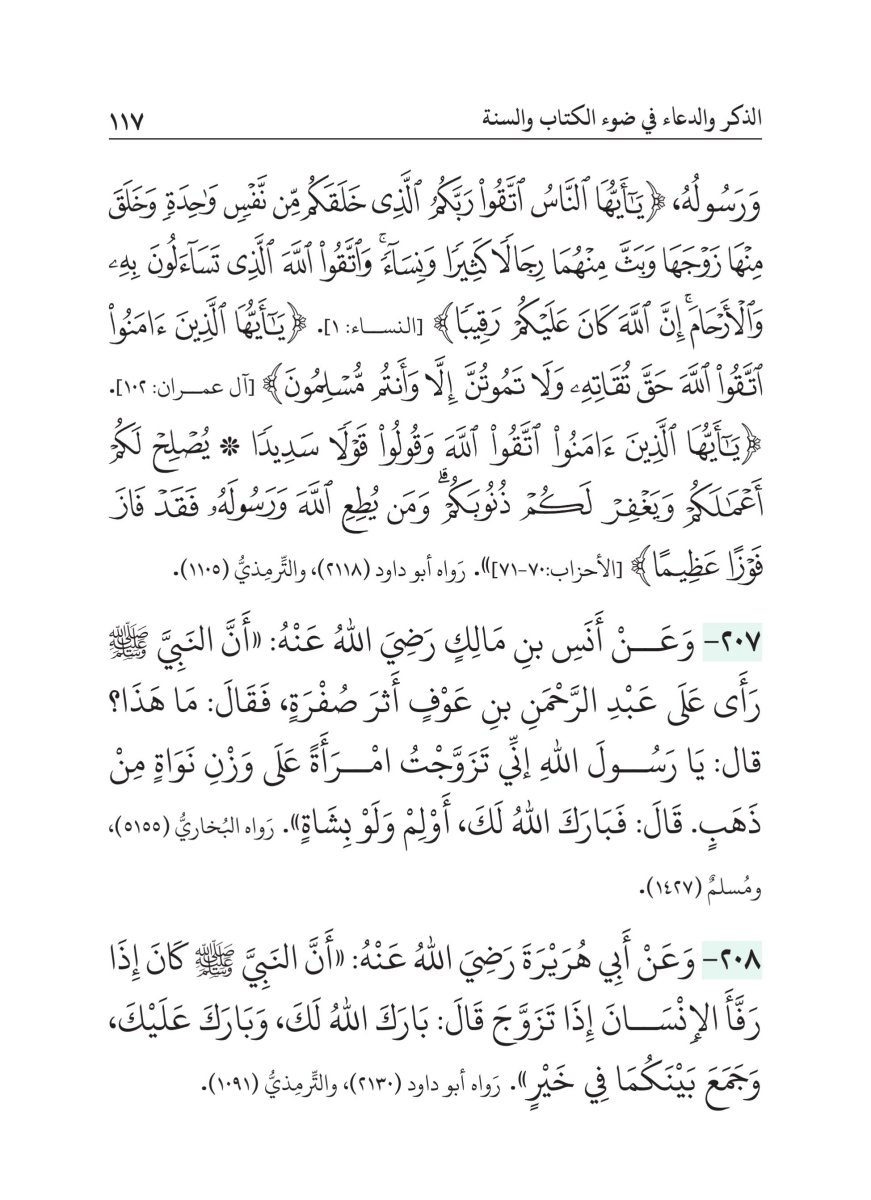 الذكر والدعاء في ضوء الكتاب والسنة ١١٧
وَرَسُولُهُ، ﴿يَـٰٓأَيُّهَا ٱلنَّاسُ ٱتَّقُواْ رَبَّكُمُ ٱلَّذِى خَلَقَكُم مِّن نَّفْسٍ وَٰحِدَةٍ وَخَلَقَ
مِنْهَا زَوْجَهَا وَبَثَّ مِنْهُمَا رِجَالًا كَثِيرًا وَنِسَآءً ۚ وَٱتَّقُواْ ٱللَّهَ ٱلَّذِى تَسَآءَلُونَ بِهِۦ
وَٱلْأَرْحَامَ ۚ إِنَّ ٱللَّهَ كَانَ عَلَيْكُمْ رَقِيبًا﴾ [النســاء: ١]. ﴿يَـٰٓأَيُّهَا ٱلَّذِينَ ءَامَنُواْ
ٱتَّقُواْ ٱللَّهَ حَقَّ تُقَاتِهِۦ وَلَا تَمُوتُنَّ إِلَّا وَأَنتُم مُّسْلِمُونَ﴾ [آل عمــران: ١٠٢].
﴿يَـٰٓأَيُّهَا ٱلَّذِينَ ءَامَنُواْ ٱتَّقُواْ ٱللَّهَ وَقُولُواْ قَوْلًا سَدِيدًا * يُصْلِحْ لَكُمْ
أَعْمَـٰلَكُمْ وَيَغْفِرْ لَكُمْ ذُنُوبَكُمْ ۗ وَمَن يُطِعِ ٱللَّهَ وَرَسُولَهُۥ فَقَدْ فَازَ
فَوْزًا عَظِيمًا﴾ [الأحزاب:٧٠-٧١]». رَواه أبو داود (٢١١٨)، والتِّرمِذيُّ (١١٠٥).
٢٠٧- وَعَــنْ أَنَسِ بنِ مَالِكٍ رَضِيَ اللهُ عَنْهُ: «أَنَّ النَبِيَّ ﷺ
رَأَى عَلَى عَبْدِ الرَّحْمَنِ بنِ عَوْفٍ أَثرَ صُفْرَةٍ، فَقَالَ: مَا هَذَا؟
قال: يَا رَسُــولَ اللهِ إنِّي تَزَوَّجْتُ امْــرَأَةً عَلَى وَزْنِ نَوَاةٍ مِنْ
ذَهَبٍ. قَالَ: فَبَارَكَ اللهُ لَكَ، أَوْلِمْ وَلَوْ بِشَاةٍ». رَواه البُخاريُّ (٥١٥٥)،
ومُسلمٌ (١٤٢٧).
٢٠٨- وَعَنْ أَبِي هُرَيْرَةَ رَضِيَ اللهُ عَنْهُ: «أَنَّ النَبِيَّ ﷺ كَانَ إِذَا
رَفَّأَ الإِنْسَــانَ إِذَا تَزَوَّجَ قَالَ: بَارَكَ اللهُ لَكَ، وَبَارَكَ عَلَيْكَ،
وَجَمَعَ بَيْنَكُمَا فِي خَيْرٍ». رَواه أبو داود (٢١٣٠)، والتِّرمِذيُّ (١٠٩١).